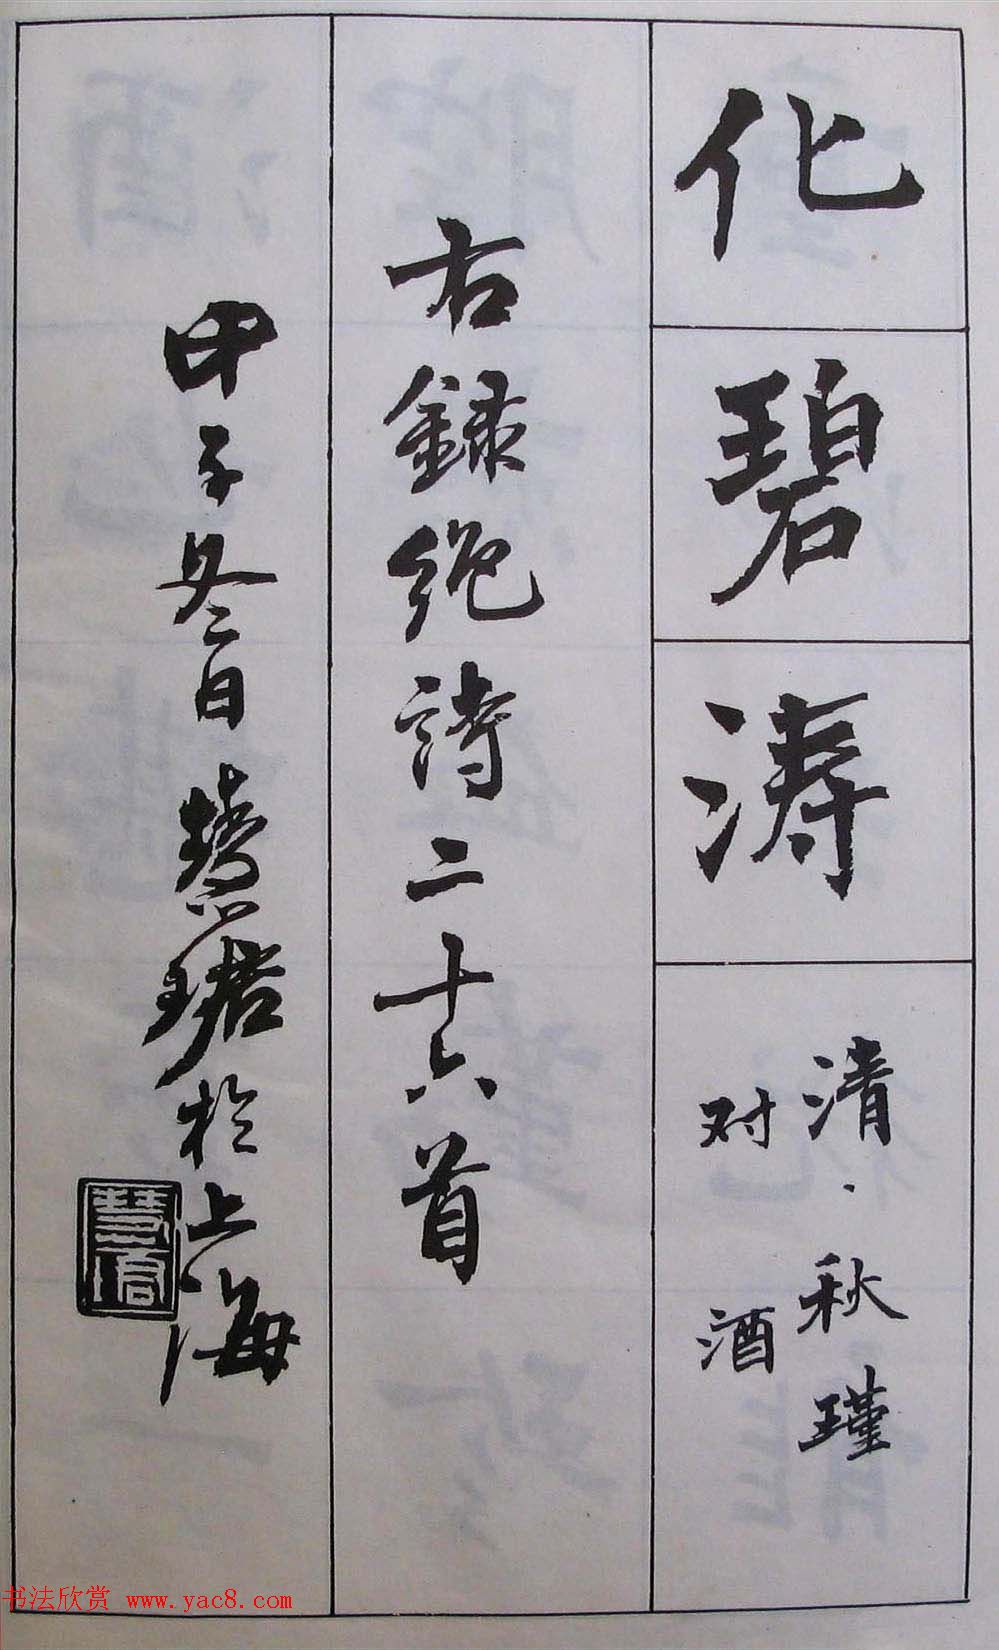 化碧涛
清·秋瑾
对酒
右録绝詩二十六首
甲子冬日慧珺於上海
书法欣赏 www.yac8.com